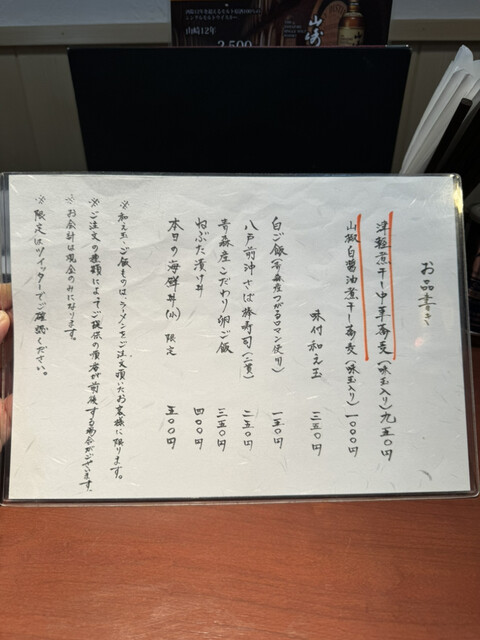 山崎12年
お品書き
津軽煮干し中華蕎麦(味玉入り)九五〇円
山椒白醤油煮干し蕎麦(味玉入り)一〇〇〇円
味付和え玉 三五〇円
白ご飯(青森産つがるロマン使用) 一五〇円
八戸前沖さば棒寿司(二貫) 二五〇円
青森産こだわり卵ご飯 三五〇円
ねぶた漬け丼 四〇〇円
本日の海鮮丼(小) 限定 五〇〇円
※和え玉、ご飯ものは、ラーメンをご注文頂いたお客様に限ります。
※ご注文の種類によってご提供の順番が前後する場合がございます。
※お会計は現金のみになります。
※限定はツイッターでご確認ください。